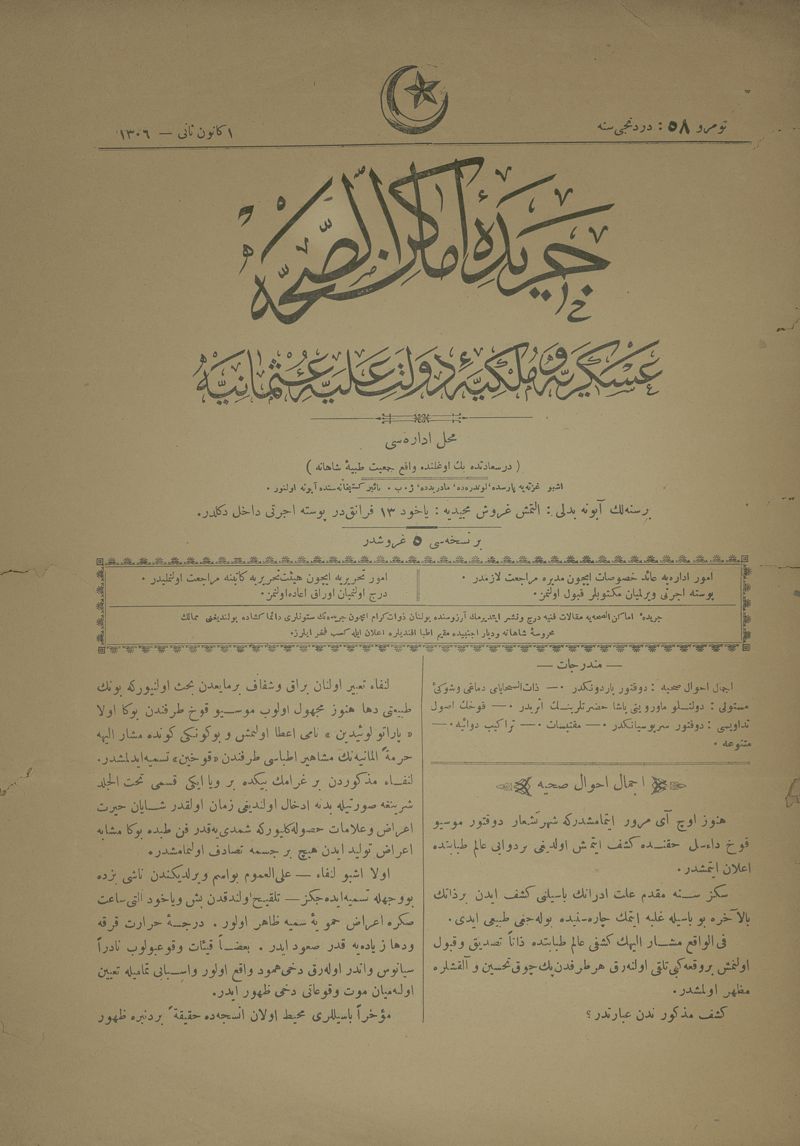 نومرو ٥٨ : دردنجی سنه
١ كانون ثانی — ١٣٠٦
جریدهٔ اماكن الصحیه
عسكریه و ملكیهٔ دولت علیهٔ عثمانیه
محل اداره‌سی
( درسعادتده بك اوغلنده واقع جمعیت طبیهٔ شاهانه )
اشبو غزته‌یه پارسده، لوندره‌ده، مادریدده، ژ . ب . بائیر كتبخانه‌سنده آبونه اولنور .
برسنه‌لك آبونه بدلی : التمش غروش مجیدیه : یاخود ١٣ فرانق‌در پوسته اجرتی داخل دكلدر.
بر نسخه‌سی ٥ غروشدر
امور اداره‌یه عائد خصوصات ایچون مدیره مراجعت لازمدر .
پوسته اجرتی ویرلمیان مكتوبلر قبول اولنمز .
امور تحریریه ایچون هیئت تحریریه كاتبنه مراجعت اولنملیدر .
درج اولنمیان اوراق اعاده اولنمز .
جریدهٔ اماكن الصحیه مقالات فنیه درج و نشر ایتدیرمك آرزوسنده بولنان ذوات كرام ایچون جریده‌نك ستونلری دائما كشاده بولندیغنی ممالك
محروسهٔ شاهانه و دیار اجنبیده مقیم اطبا افندیلره اعلان ایله كسب فخر ایلرز.
— مندرجات —
اجمال احوال صحیه : دوقتور پاردونكدر .— ذات السحایای دماغی وشوكیٔ
مستولی : دولتلو ماوروینی پاشا حضرتلرینك اثریدر .— قوخك اصول
تداویسی : دوقتور سرپوسیانكدر .— مقتبسات .— تراكیب دوائیه .—
متنوعه .
اجمال احوال صحیه
هنوز اوچ آی مرور ایتمامشدركه شهرتشعار دوقتور موسیو
قوخ داءسل حقنده كشف ایتمش اولدیغی بردوایی عالم طبابتده
اعلان ایتمشدر .
سكز سنه مقدم علت ادرانك باسیلنی كشف ایدن برذاتك
بالآخره بو باسیله غلبه ایتمك چاره‌سنیده بوله‌جغی طبیعی ایدی .
فی الواقع مشار الیهك كشفی عالم طبابتده ذاتاً تصدیق وقبول
اولنمش بروقعه كبی تلقی اولنه‌رق هر طرفدن پك چوق تحسین و آلقشلره
مظهر اولمشدر .
كشف مذكور ندن عبارتدر ؟
لنفاء تعبیر اولنان براق وشفاف برمایعدن بحث اولنیوركه بونك
طبیعتی دها هنوز مجهول اولوب موسیو قوخ طرفندن بوكا اولا
« پاراتولوئیدین » نامی اعطا اولنمش و بوكونكی كونده مشار الیهه
حرمةً المانیه‌نك مشاهیر اطباسی طرفندن «قوخین» تسمیه ایدلمشدر.
لنفاء مذكوردن بر غرامك بیكده بر ویا ایكی قسمی تحت الجلد
شرینغه صورتیله بدنه ادخال اولندیغی زمان اولقدر شایان حیرت
اعراض وعلامات حصوله كلیوركه شمدی‌یه‌قدر فن طبده بوكا مشابه
اعراض تولید ایدن هیچ بر جسمه تصادف اولنمامشدر .
اولا اشبو لنفاء — علی‌العموم بواسم ویرلدیكندن ناشی بزده
بووجهله تسمیه ایده‌جكز — تلقیح اولندقدن بش ویاخود التی ساعت
صكره اعراض حمویهٔ سمیه ظاهر اولور . درجهٔ حرارت قرقه
ودها زیاده‌یه قدر صعود ایدر . بعضاً قیئات وقوعبولوب نادراً
سیانوس واندر اوله‌رق دخی همود واقع اولور واسبابی تمامیله تعیین
اوله‌میان موت وقوعاتی دخی ظهور ایدر .
مؤخراً باسیللری محیط اولان انسجه‌ده حقیقةً بردنبره ظهور